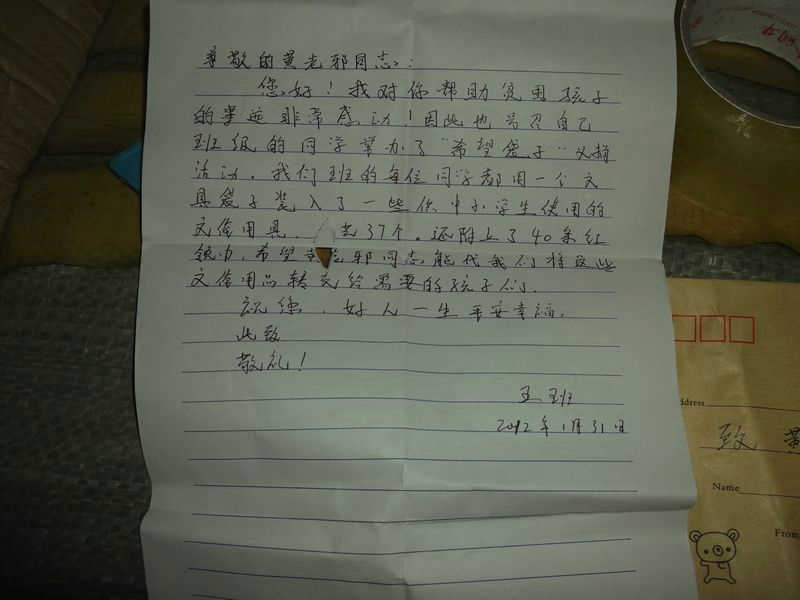 尊敬的黄老邪同志：
您好！我对你帮助贫困孩子
的幸运非常感动！因此也号召自己
班级的同学举办了“希望袋子”义捐
活动。我们班的每位同学都用一个文
具袋子装入了一些供中小学生使用的
文体用具，共37个。还附上了40条红
领巾，希望老邪同志能代我们将这些
文体用品转交给需要的孩子们。
祝您，好人一生平安幸福。
此致
敬礼！
班
2012年1月31日
Address
致 黄
Name
From